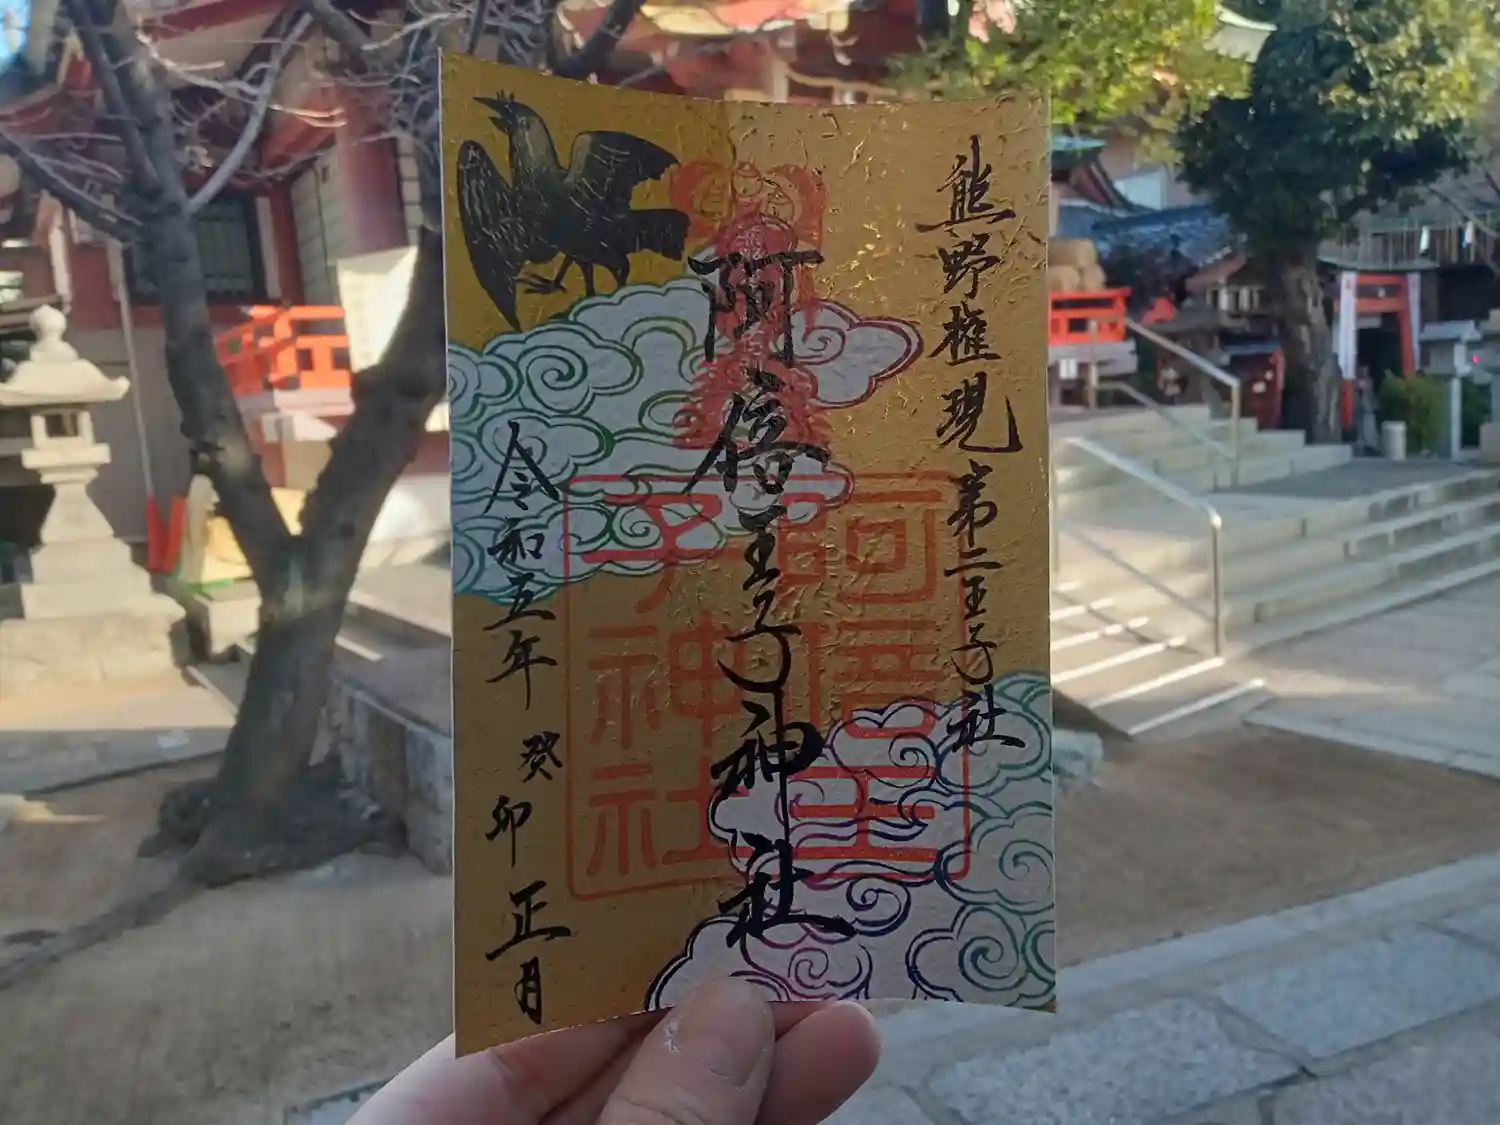 熊野権現第二王子社
阿倍王子神社
阿倍王
子神社
令和五年
癸卯
正月